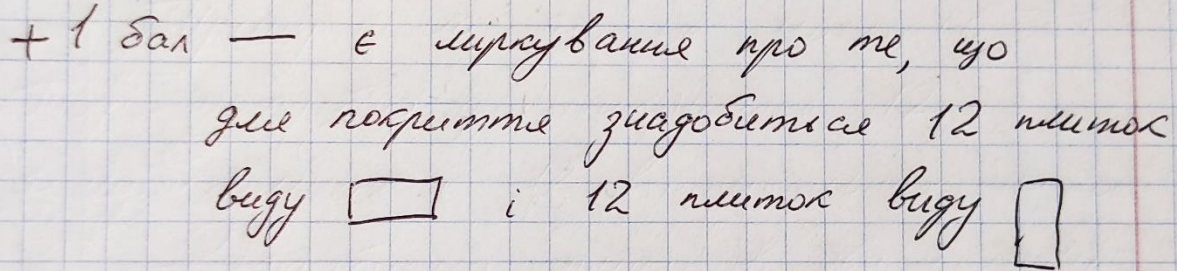 + 1 бал — є міркування про те, що
для покриття знадобиться 12 плиток
виду і 12 плиток виду